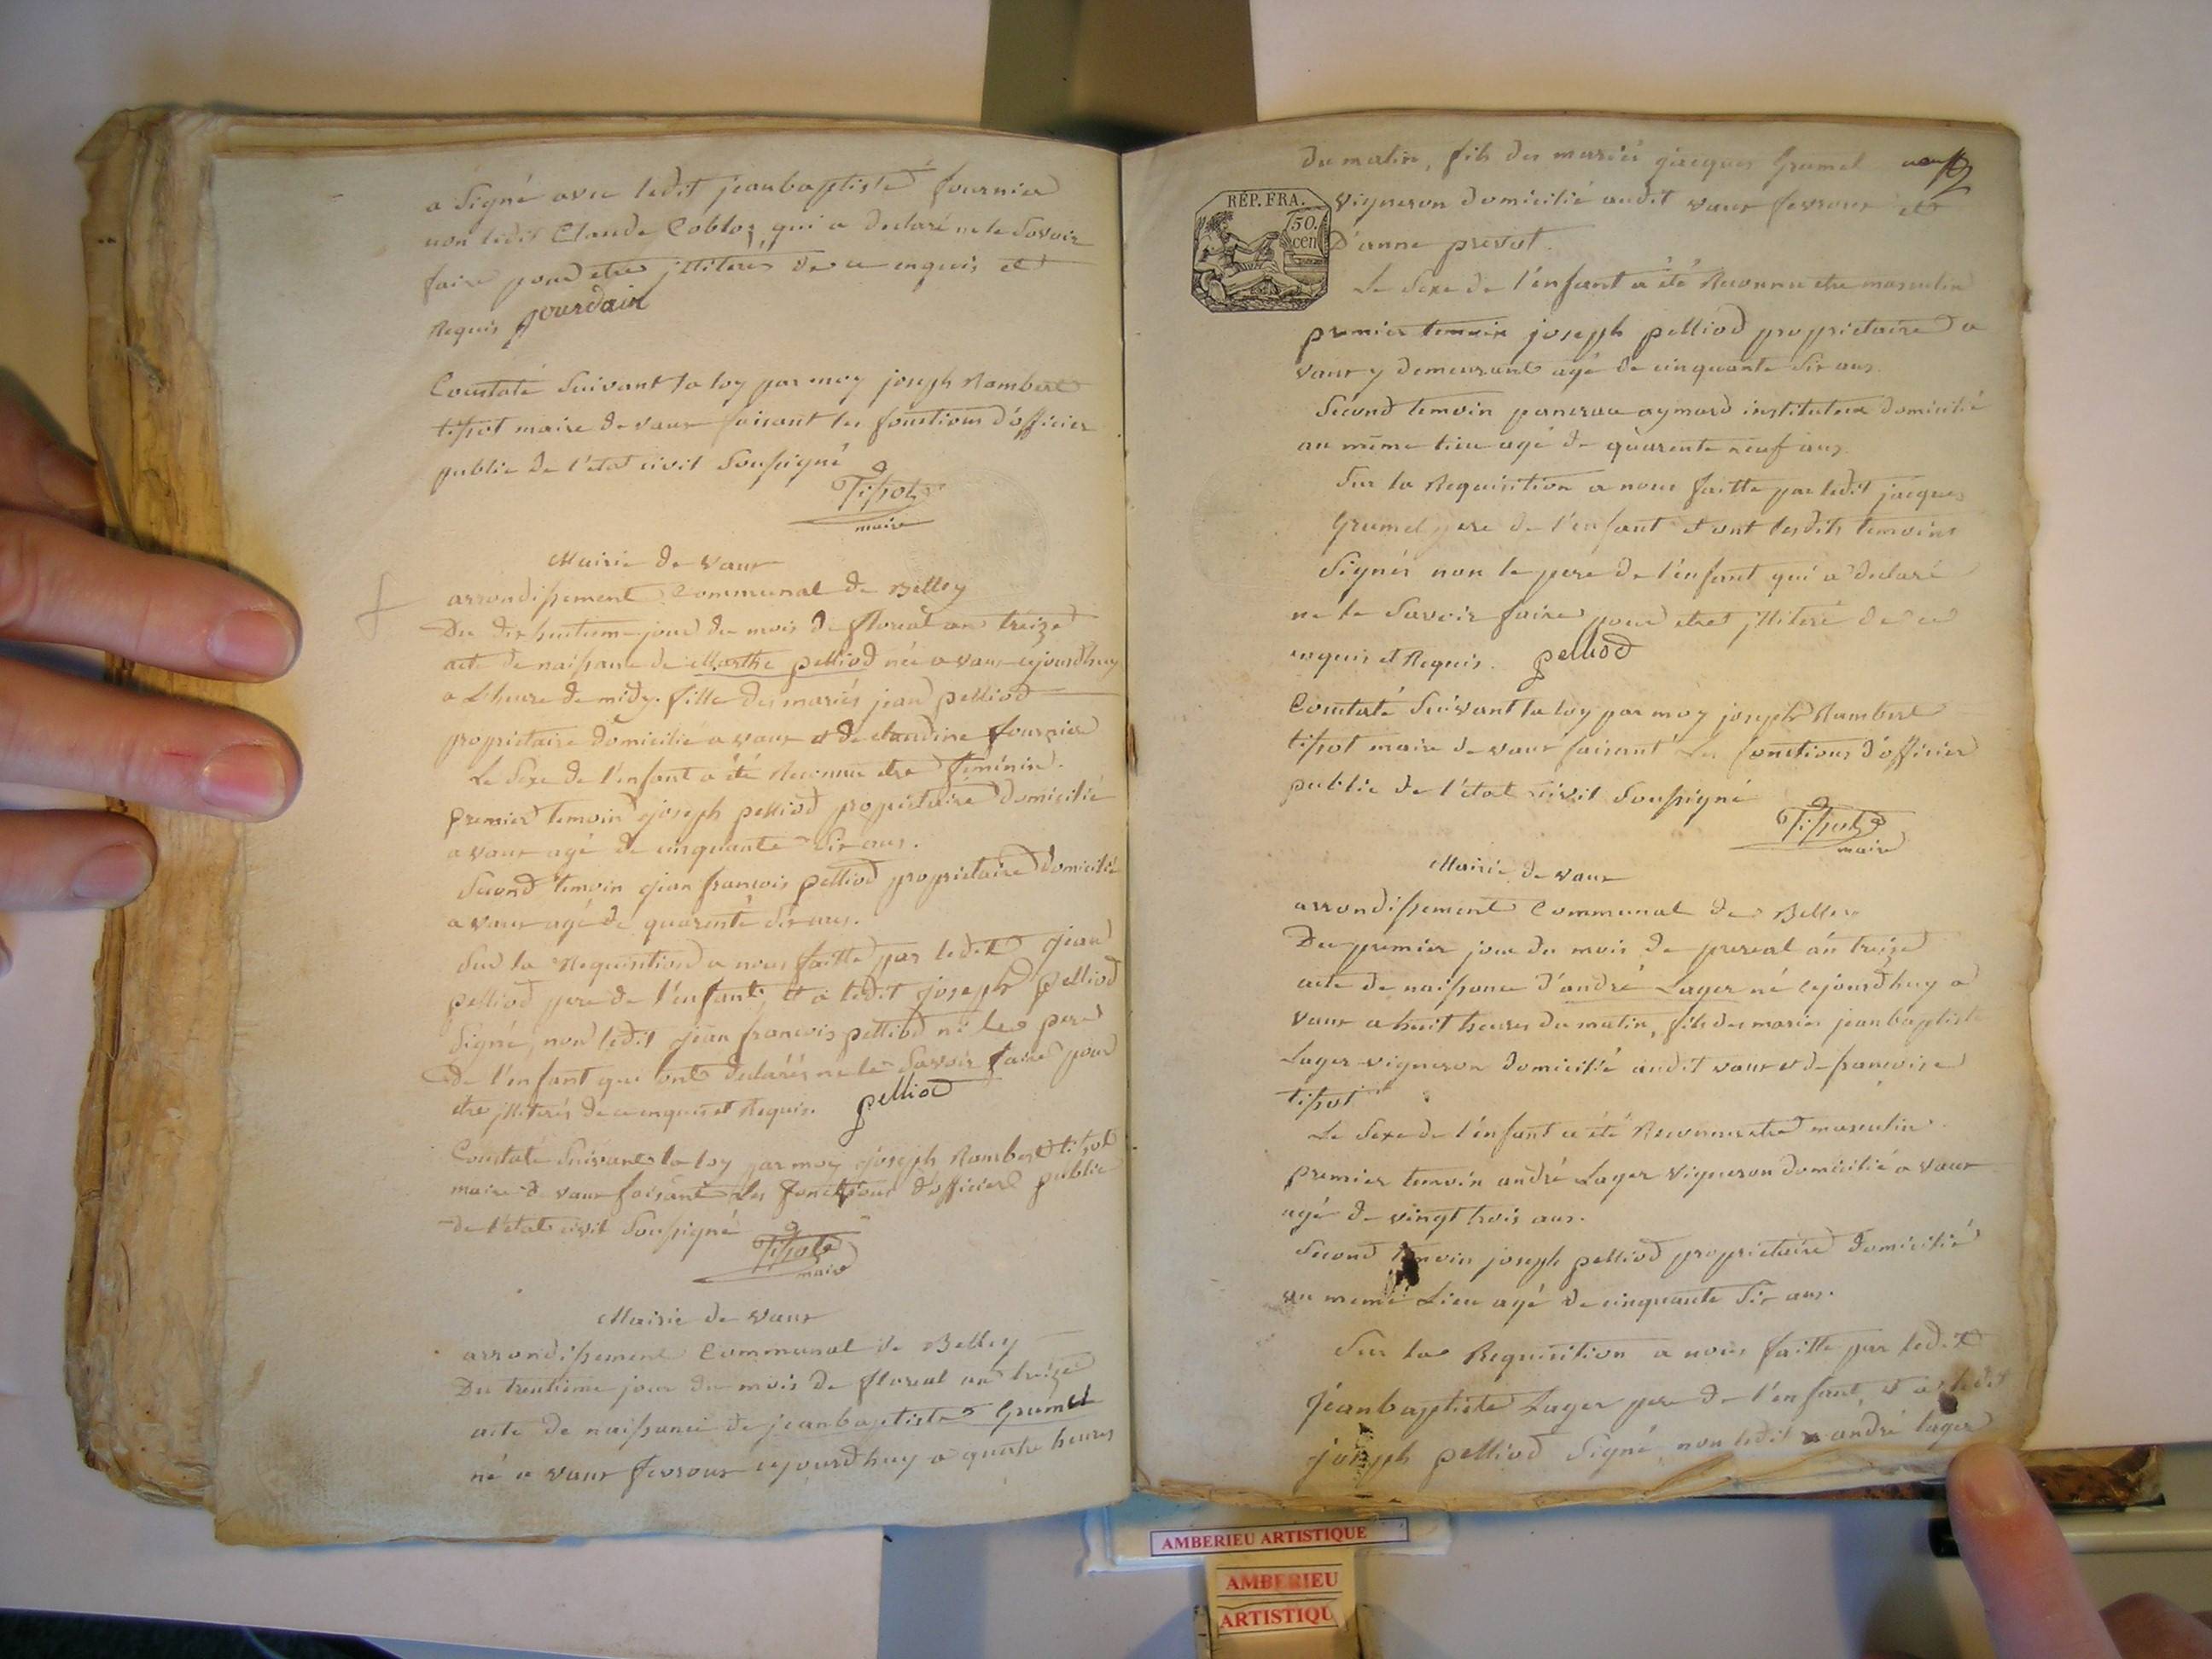 a Signé avec ledit jeanbaptiste fournier
non ledit Claude Cobloz, qui a declaré ne le Savoir
faire pour etre jlliteré de ce enquis et
Requis jourdain
Constaté Suivant la loy par moy joseph Rambert
tissot maire de vaux faisant les fonctions d'officier
public de l'etat civil Soussigné
Tissot
maire
Mairie de vaux
arrondissement Communal de Belley
Du dix huitieme jour du mois de floreal an treize
acte de naissance de Marthe pelliod née a vaux cejourdhuy
a L'heure de midy. fille des mariés jean pelliod
propriétaire domicilié a vaux et de claudine fournier
Le Sexe de l'enfant a été Reconnu etre feminin.
premier temoin joseph pelliod propriétaire domicilié
a vaux agé de cinquante Six ans.
Second temoin jean françois pelliod propriétaire domicilié
a vaux agé de quarente Six ans.
Sur la Requisition a nous faitte par ledit jean
pelliod pere de l'enfant, et a ledit joseph pelliod
Signé, non ledit jean françois pelliod ni le pere
de l'enfant qui ont declarés ne le Savoir faire pour
etre jlliterés de ce enquis et Requis. pelliod
Constaté Suivant la loy par moy joseph Rambert tissot
maire de vaux faisant les fonctions d'officier public
de l'etat civil Soussigné
Tissot
maire
Mairie de vaux
arrondissement Communal de Belley
Du trentieme jour du mois de floreal an treize
acte de naissance de jeanbaptiste Grumel
né a vaux fevroux cejourdhuy a quatre heures
neuf
du matin, fils des mariés jacques Grumel
vigneron domicilié audit vaux fevroux et
d'anne prevot.
RÉP. FRA.
50.
cen
Le Sexe de l'enfant a été Reconnu etre masculin
premier temoin joseph pelliod propriétaire a
vaux y demeurant agé de cinquante Six ans.
Second temoin pancrace aymard instituteur domicilié
au même lieu agé de quarente neuf ans.
Sur la Requisition a nous faitte par ledit jacques
Grumel pere de l'enfant et ont lesdits temoins
Signés non le pere de l'enfant qui a declaré
ne le Savoir faire pour etre jlliteré de ce
enquis et Requis. pelliod
Constaté Suivant la loy par moy joseph Rambert
tissot maire de vaux faisant Les fonctions d'officier
public de l'état civil Soussigné
Tissot
maire
Mairie de vaux
arrondissement Communal de Belley
Du premier jour du mois de prereal an treize
acte de naissance d'andré Lager né cejourdhuy a
vaux a huit heures du matin, fils des mariés jeanbaptiste
Lager vigneron domicilié audit vaux et de françoise
tissot
Le Sexe de l'enfant a été Reconnu etre masculin.
premier temoin andré Lager vigneron domicilié a vaux
agé de vingt trois ans.
Second temoin joseph pelliod propriétaire domicilié
au même Lieu agé de cinquante Six ans.
Sur la Requisition a nous faitte par ledit
jeanbaptiste Lager pere de l'enfant, et a ledit
joseph pelliod Signé non ledit andré lager
AMBERIEU ARTISTIQUE
AMBERIEU
ARTISTIQU